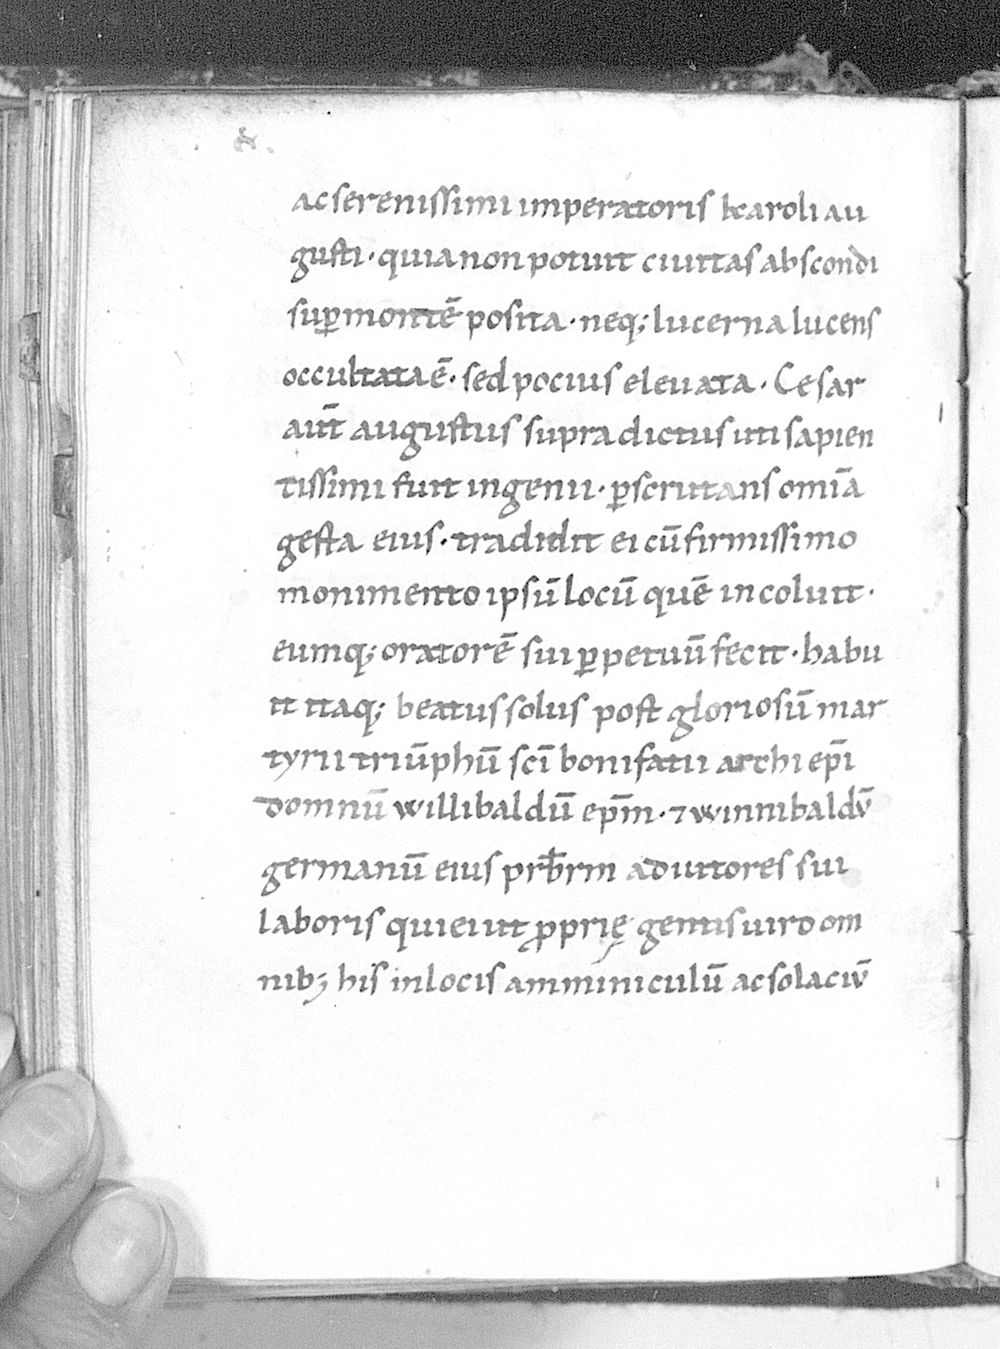 &
ac serenissimi imperatoris karoli au
gusti · quia non potuit ciuitas abscondi
suꝑ montē posita · neq; lucerna lucens
occultata ē · sed pocius eleuata · Cesar
aut̄ augustus supradictus uti sapien
tissimi fuit ingenii · ꝑscrutans omīa
gesta eius · tradidit ei cū firmissimo
monimento ipsū locū quē incoluit ·
eumq; oratorē sui ꝑpetuū fecit · habu
it itaq; beatus solus post gloriosū mar
tyrii triūphū sc̄i bonifatii archi ep̄i
domnū willibaldū ep̄m · ⁊ winnibaldū
germanū eius prb̄rm adiutores sui
laboris quieuit ꝓprię gentis uiro om
nib; his in locis amminiculū ac solaciū